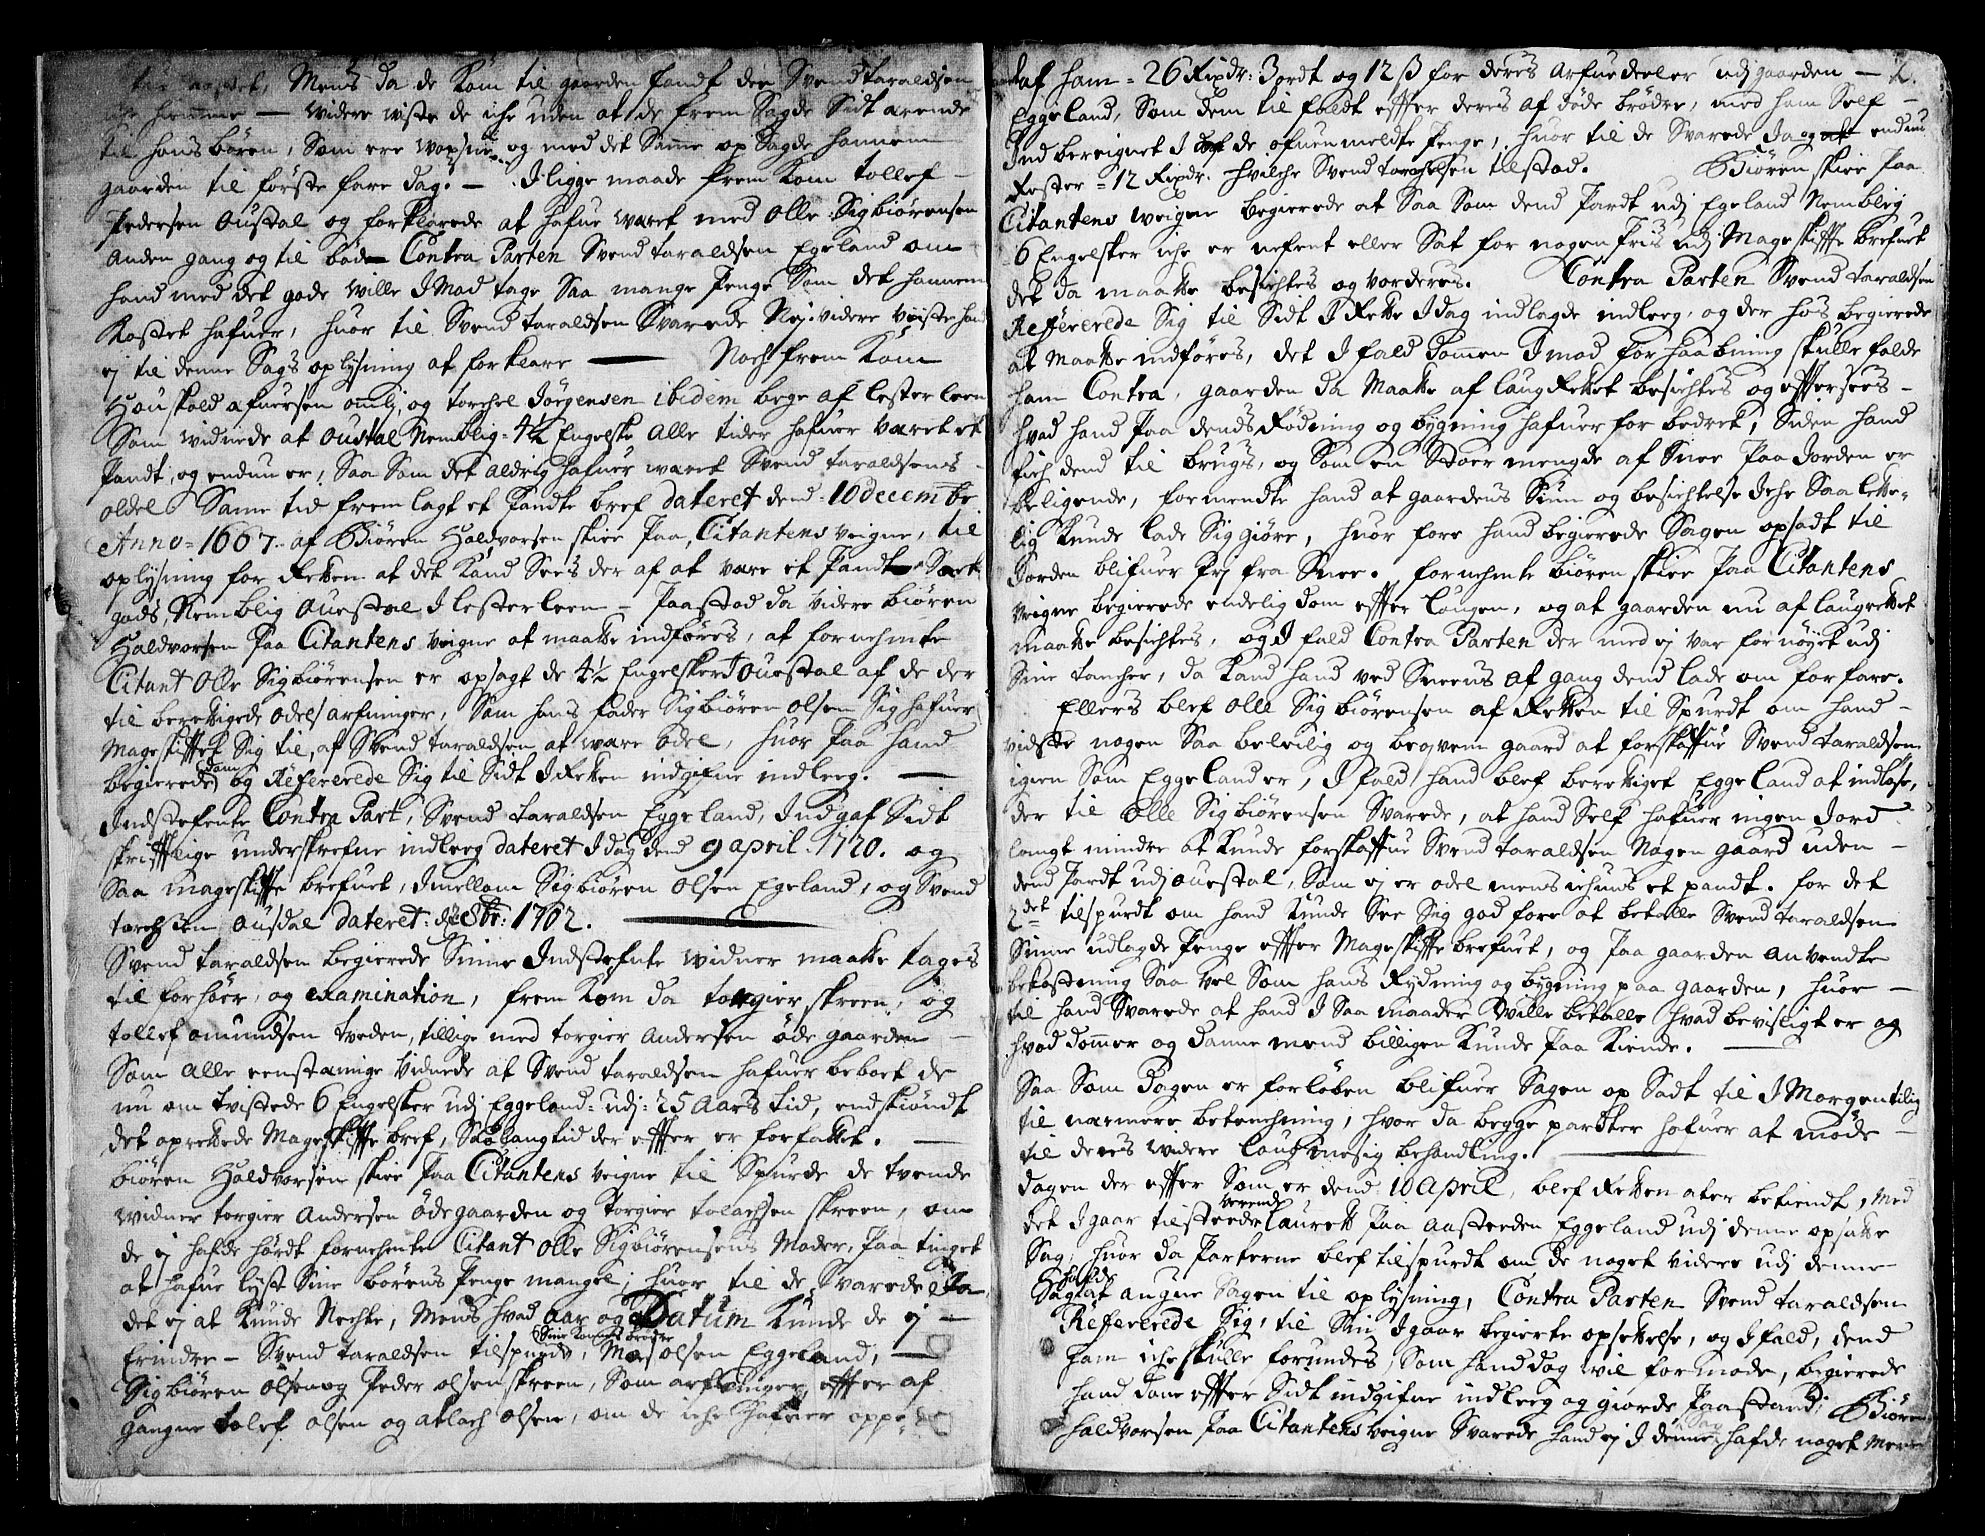 Mens da de Kom til gaarden fandt de Svend taraldsen
iche hiemme — widere wiste de iche uden at de frem Sagde Sidt ærende
til hans børen, Som ere woxne, og med det Samme op Sagde hannem
gaarden til første fare dag. — I ligge maade frem Kom tollef
Pedersen Oustal og forklarede at hafue waret med Olle Sigbiørensen
Anden gang og til bød Contra Parten Svend taraldsen Egeland om
hand med det gode wille I Mod tage Saa mange Penge Som det hannem
Kostet hafuer, huor til Svend taraldsen Svarede Nej. videre viste hand
ej til denne Sags oplysning at forklare — Noch frem Kom
Houskold afuersen omlj, og torchel Jørgensen ibidem bege af lesterleen
Som widnede at Oustal Nemblig 4½ Engelske Alle tider hafuer waret et
Pandt, og endnu er, Saa Som det Aldrig hafuer waret Svend taraldsens
oldel Same tid frem lagt et Pandte bref dateret dend 10 decembr
Anno 1667 af Biøren Haldvorsen skiee Paa Citantens veigne, til
oplysning for Retten at det Kand Sees der af at vare et Pandt
gods, Nemblig Ouestal I lesterleen — Paastod da videre biøren
Haldvorsen Paa Citantens veigne at maatte indføres, at fornehmte
Citant Olle Sigbiørensen er opsagt de 4½ Engelsker I ouestal af de der
til berettigede odels arfuinger, Som hans fader Sigbiøren olsen Sig hafuer
Mageskiftet Sig til, af Svend taraldsen at ware odel, huor Paa hand
begierede dom og Refererede Sig til Sidt I Retten indgifne indleeg. —
Indstefente Contra Part, Svend taraldsen Eggeland, Indgaf Sidt
skrifftlige underskrefne indleeg dateret I dag dend 9 april 1720. og
Saa mageskifte brefuet, Imellom Sigbiøren Olsen Egeland, og Svend
taraldsen Ousdal dateret 1702.
Svend taraldsen begierede Sinne Indstefnte widner maatte tages
til forhør, og examination, frem Kom da torgier skreen, og
tollef omundsen tveden, tillige med torgier Andersen øde gaarden
Som Alle eenstemige vidnede at Svend taraldsen hafuer beboet de
nu om tvistede 6 Engelsker udj Eggeland udj 25 Aars tid, endskiøndt
det oprettede Mageskifte bref, Saa langtid der effter er forfattet. —
biøren Haldvorsen skiee Paa Citantens veigne til Spurde de tvende
widner torgier Andersen ødegaarden og Torgier tolachsen skreen, om
de ej hafde hørdt fornehmte Citant Olle Sigbiørensens Moder, Paa tinget
at hafue lyst Sine børens Penge mangel, huor til de Svarede Ja
det ej at Kunde Nechte, Mens hvad Aar og Datum Kunde de ej —
Erindre — Svend taraldsen tilspurde Sine Koenes brødre, Mass olsen Eggeland,
Sigbiøren Olsen og Peder olsen skreen, Som arfuinger effter af
gangne tolef olsen og atlach olsen, om de iche hafuer oppe
af ham 26 Rixdr: 3 ordt og 12 ß for deres Arfuedeeler udj gaarden — 2.
Eggeland, Som dem til faldt effter deres af døde brødre, med ham Self
Ind bereignet I de ofuenmeldte Penge, huor til de Svarede Ja og endnu
Rester 12 Rixdr. hvilche Svend taraldsen tilstod. Biøren skiee Paa
Citantens veigne begierede at Saa Som dend Pardt udj Egeland Nemblig
6 Engelsker iche er nefent eller Sat for nogen Pris udj Mageskiffte brefuet
det da maatte besichtes og vorderes. Contra Parten Svend taraldsen
Refererede Sig til Sidt I Rette I dag indlagde indleeg, og der hos begierede
at Maatte indføres, det I fald dommen I mod forhaabning skulle falde
ham Contra, gaarden da Maatte af laug Rettet besichtes og efftersees
hvad hand Paa dends Rødning og bygning hafuer for bedret, Siden hand
fich dend til brugs, og Som en Stoer mengde af Snee Paa Jorden er
beligende, formendte hand at gaardens Siun og besichtelse Iche Saa lette-
lig Kunde lade Sig giøre, huor fore hand begierede Sagen opsadt til
Jorden blifuer frj fra Snee. fornehmte biøren skiee Paa Citantens
veigne begierede endelig dom effter lougen, og at gaarden nu af laugrettet
maatte besichtes, og I fald Contra Parten der med ej var fornøyet udj
Sine tancher, da Kand hand ved Sneens af gang dend lade om forfare.
Ellers blef Olle Sigbiørensen af Retten til Spurdt om hand
vidste nogen Saa beleilig og beqvem gaard at forskaffue Svend taraldsen
igien Som Eggeland er, I fald hand blef berettiget Eggeland at indløse,
der til Olle Sigbiørensen Svarede, at hand Self hafuer ingen Jord
langt mindre at Kunde forskaffue Svend taraldsen Nogen gaard uden
dend Pardt udj ouestal, Som ej er odel mens ichuns et pandt. for det
2det tilspurdt om hand Kunde See Sig god fore at betalle Svend taraldsen
Sinne udlagde Penge effter Mageskiffte brefuet, og Paa gaarden Anvendte
bekostning Saa vel Som hans Rydning og bygning paa gaarden, huor
til hand Svarede at hand I Saa maader wille betalle hvad bevisligt er og
hvad dommer og Danne mend billigen Kunde Paa Kiende. —
Saa Som dagen er forløben blifuer Sagen op Sadt til I Morgen tilig
til nærmere betenchning, hvor da begge parter hafuer at møde
til deres widere laugmesig behandling.
dagen der effter Som er dend 10 April, blef Retten ater betiendt, Med
det I gaar tilstede verende Laurett Paa Aasteeden Eggeland udj denne opsatte
Sag, huor da Parterne blef tilspurdt om de noget videre udj denne
Sag hafde at angue Sagen til oplysning, Contra Parten Svend taraldsen
Refererede Sig til Sin I gaar begierte opsettelse, og I fald, dend
ham iche skulle forundes, Som hand dog vil formode, begierede
hand dom effter Sidt indgifne indleeg og giorde Paastand, Biøren
haldvorsen Paa Citantens veigne Svarede hand ej I denne Sag hafde noget mere